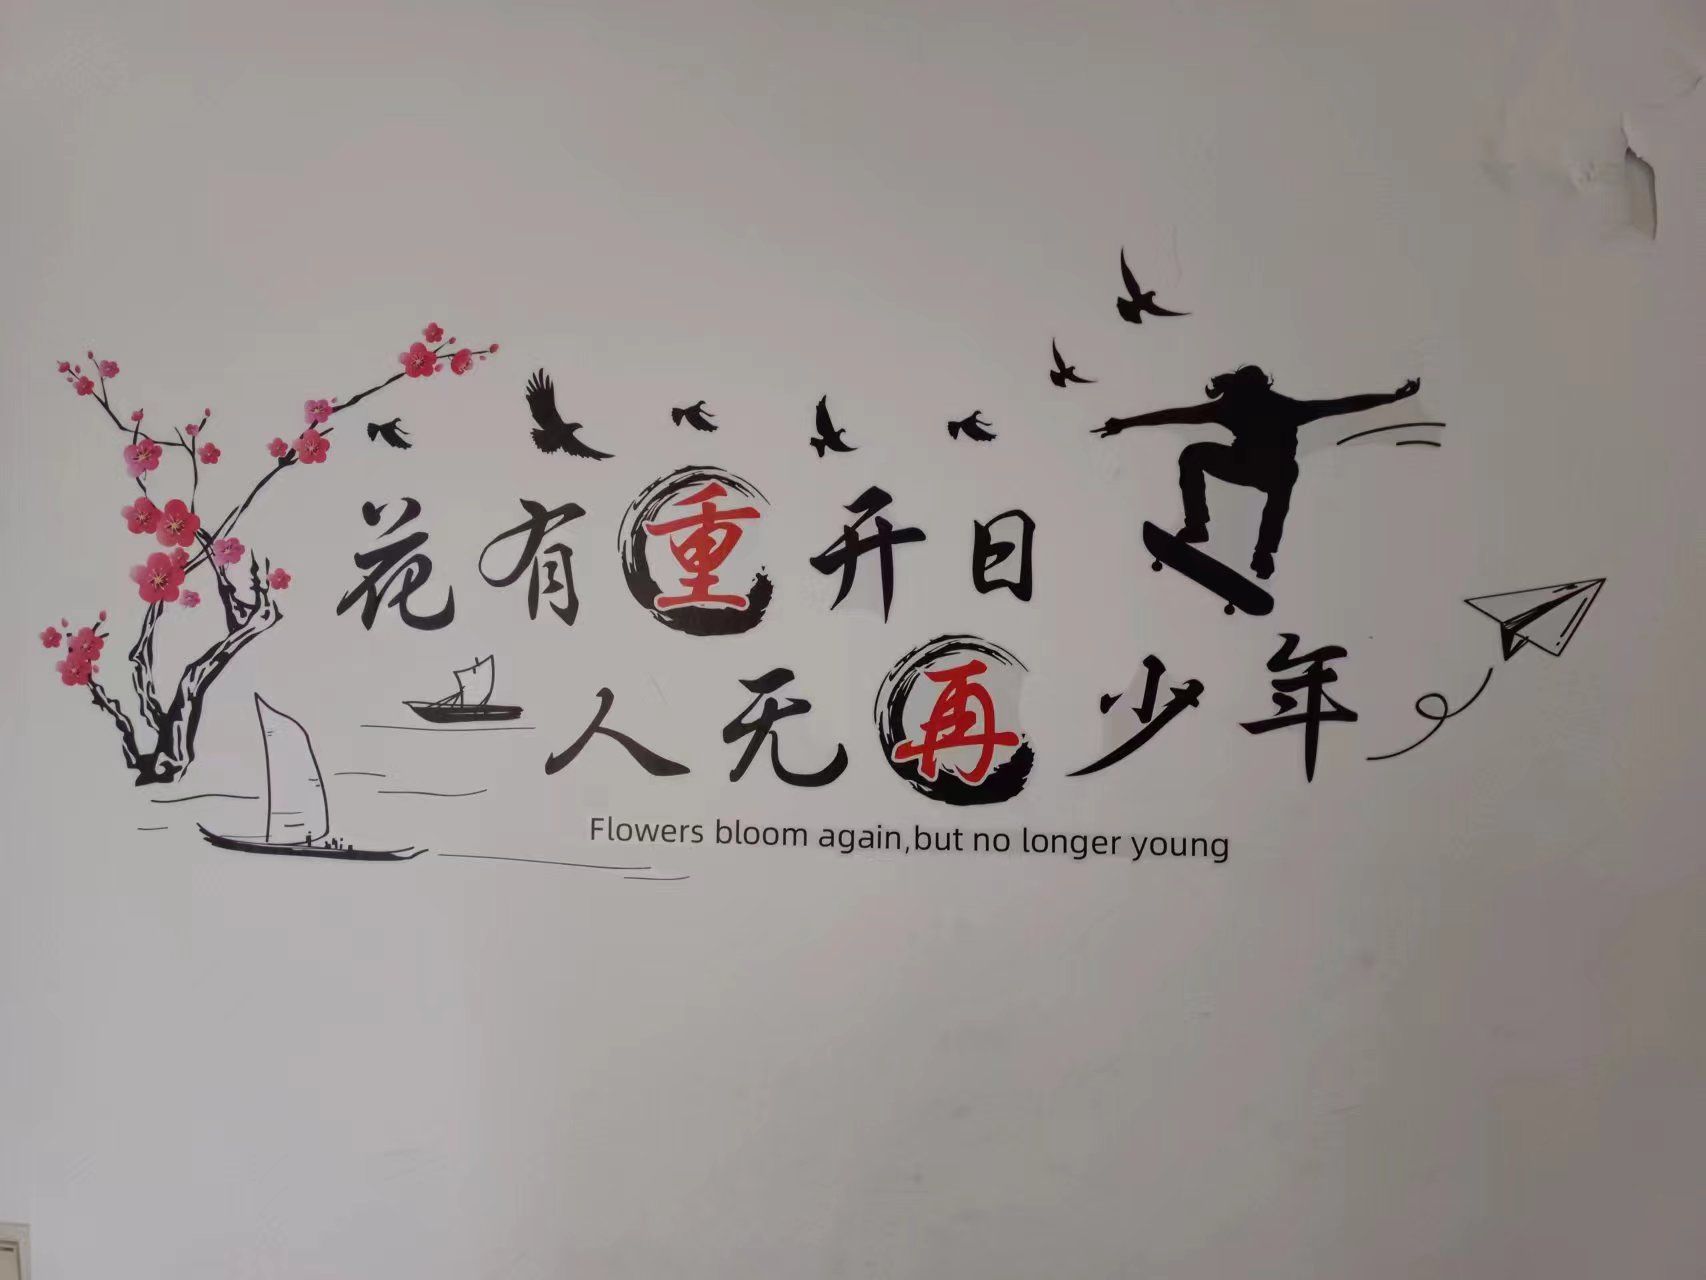 花有重开日
人无再少年
Flowers bloom again,but no longer young